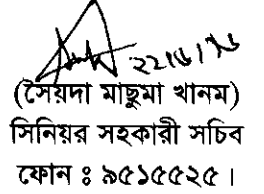 (সৈয়দা মাছুমা খানম)
সিনিয়র সহকারী সচিব
ফোন ঃ ৯৫১৫৫২৫।